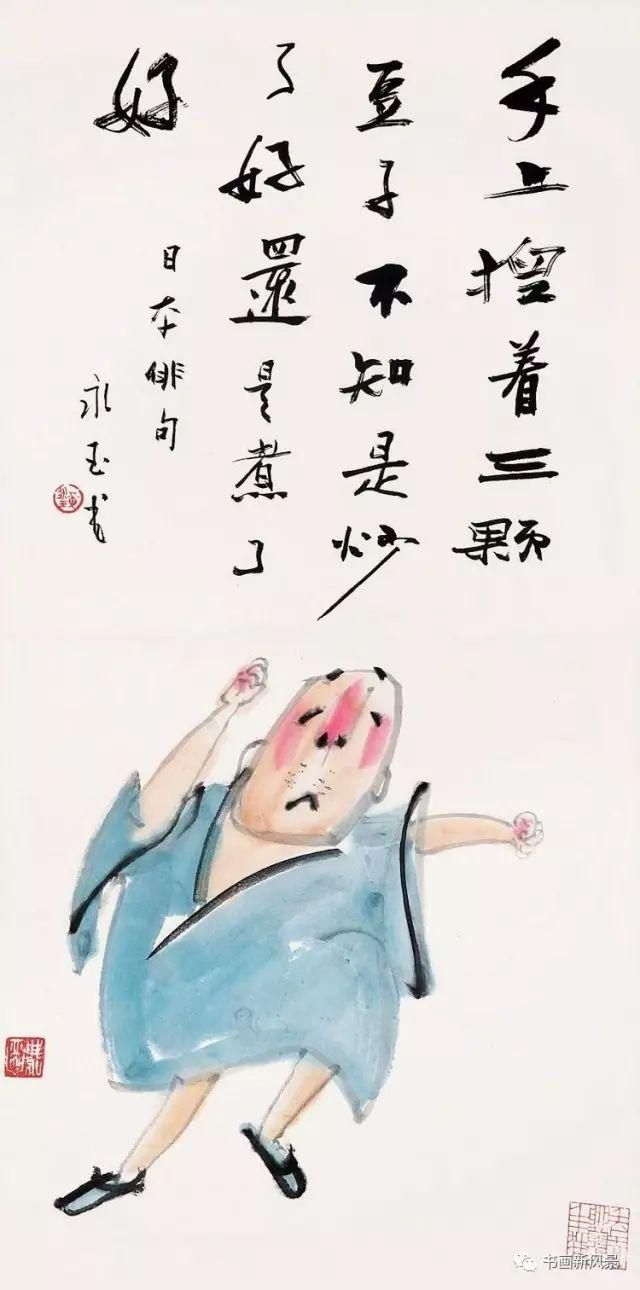 手上揑着三颗
豆子不知是炒
了好還是煮了
好
日本俳句
永玉书
书画新风景